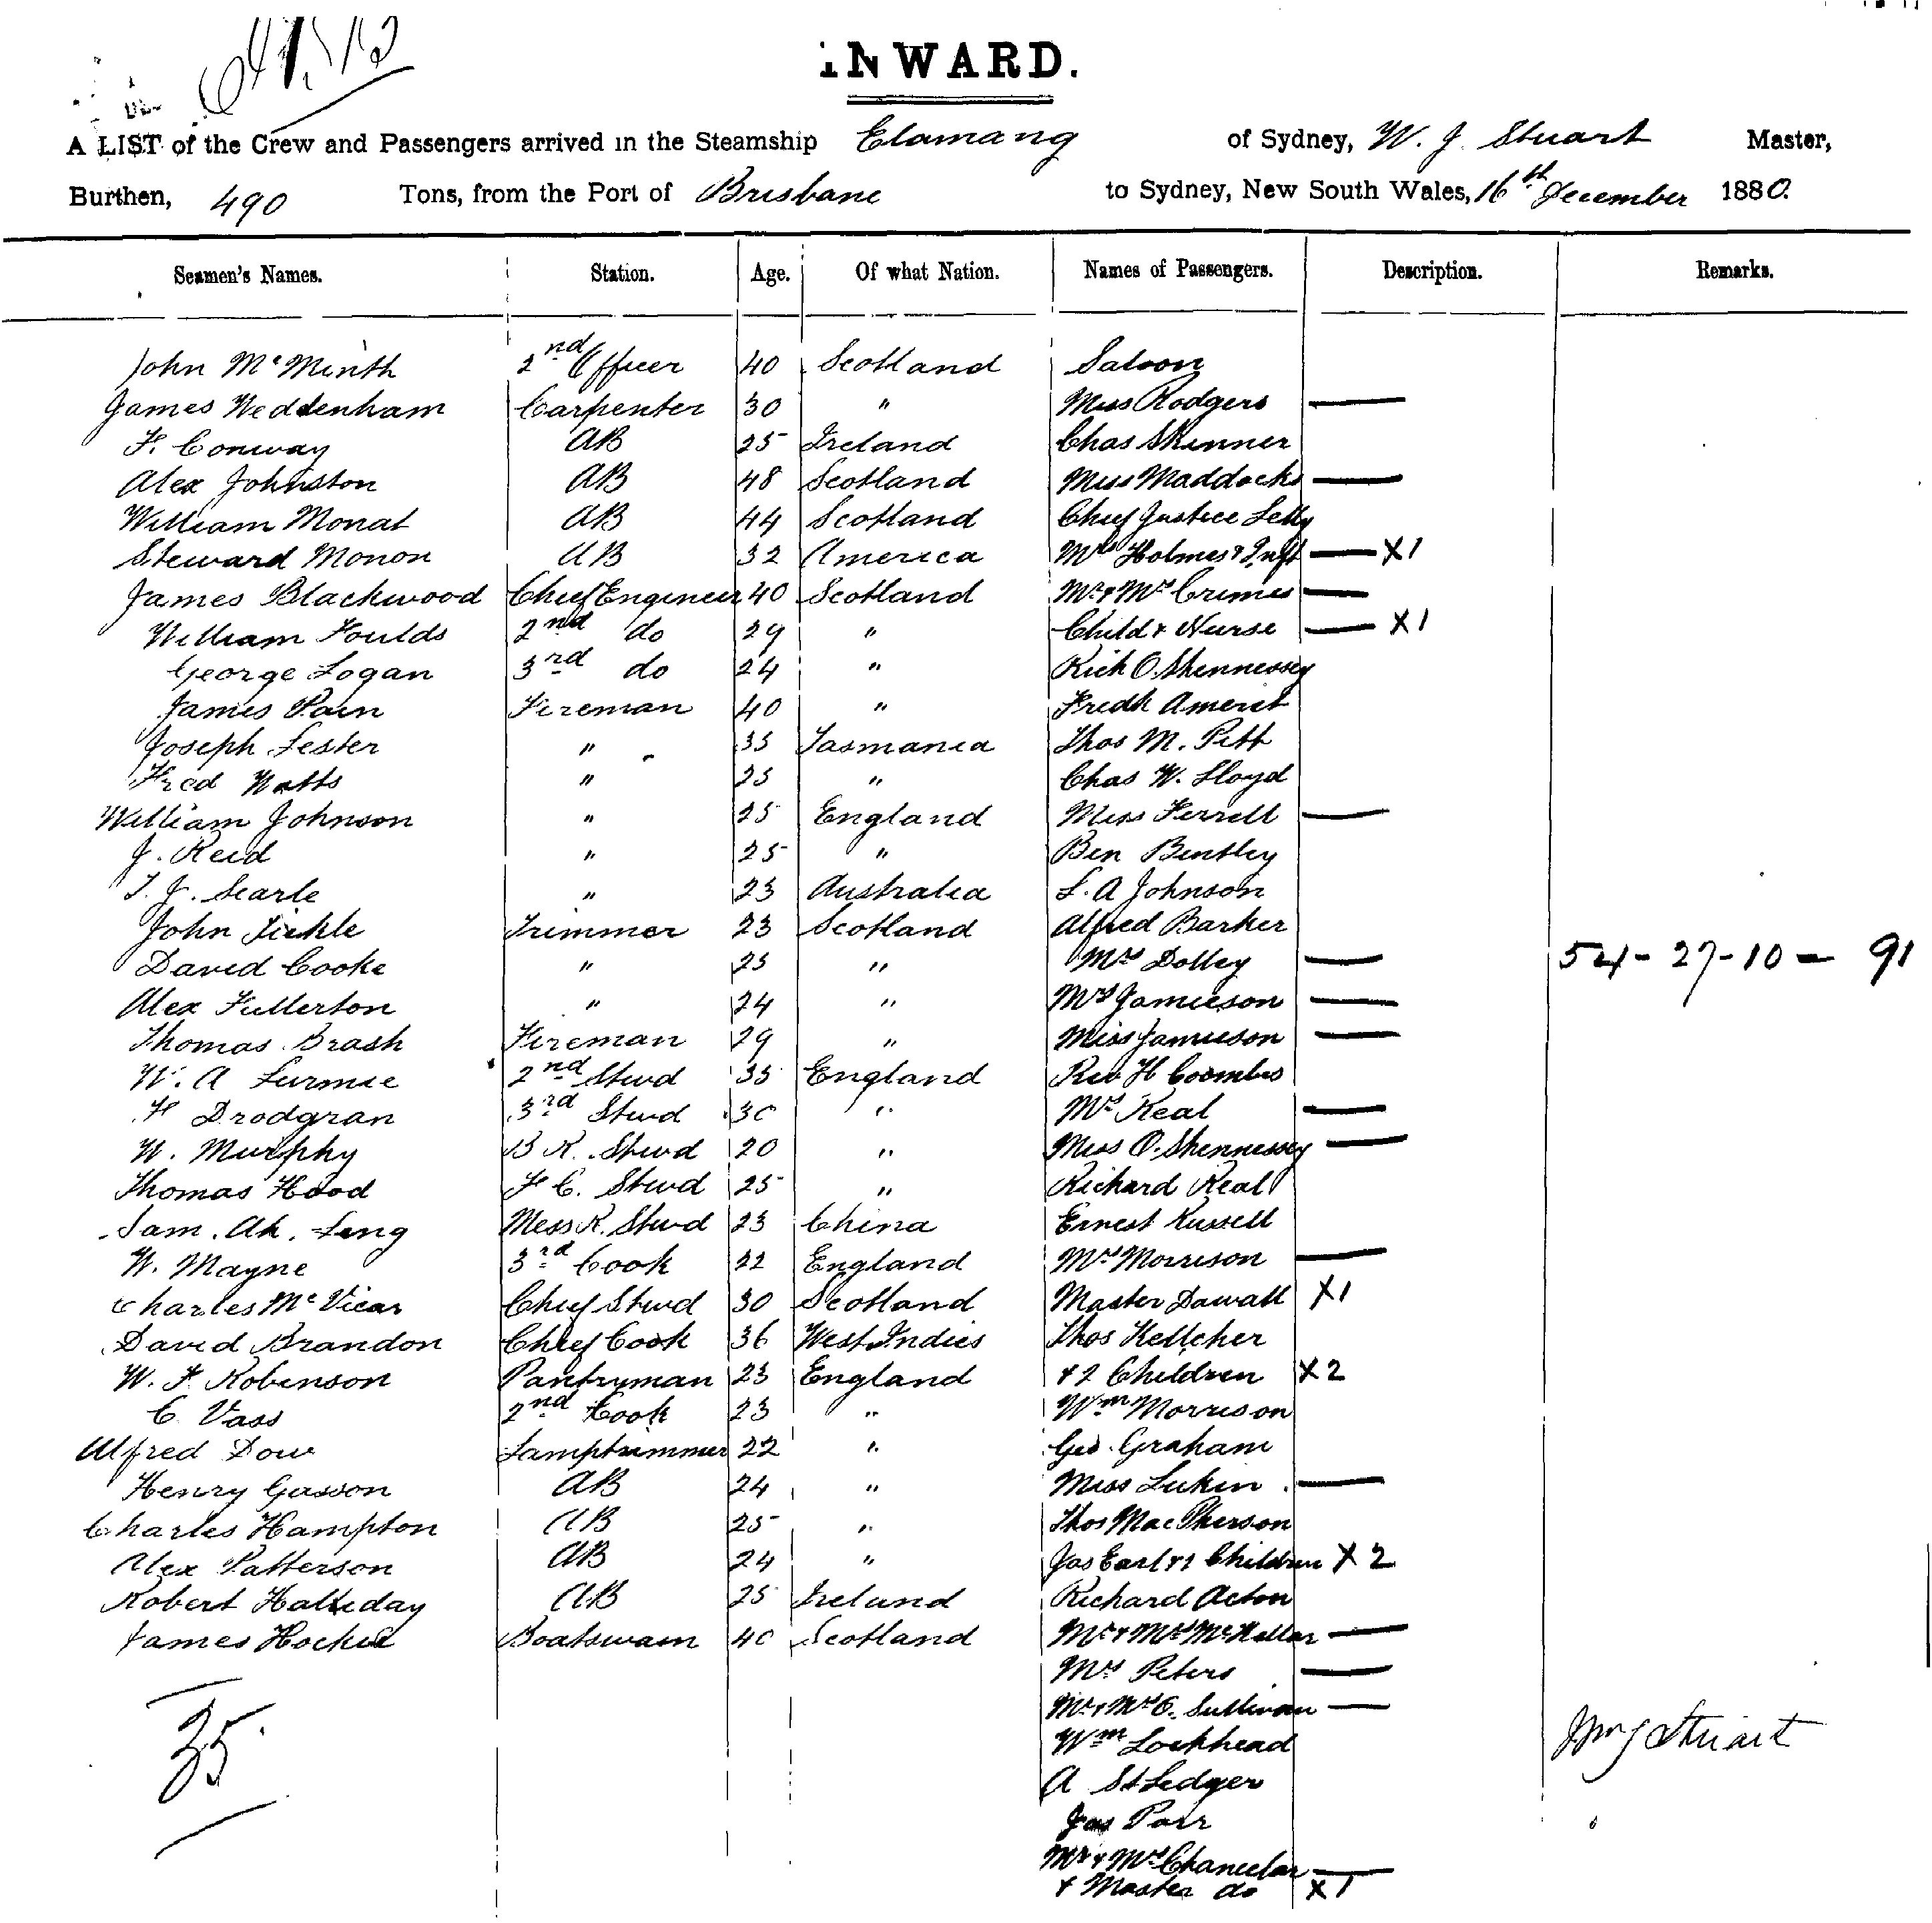 INWARD.
A LIST of the Crew and Passengers arrived in the Steamship Elamang of Sydney, W. J. Stuart Master,
Burthen, 490 Tons, from the Port of Brisbane to Sydney, New South Wales, 16th December 1880.
Seamen's Names. Station. Age. Of what Nation. Names of Passengers. Description. Remarks.
John McMinth 2nd Officer 40 Scotland Saloon
James Weddenham Carpenter 30 " Miss Rodgers —
F. Conway AB 25 Ireland Chas Skinner
Alex Johnston AB 48 Scotland Miss Maddocks —
William Monat AB 44 Scotland Chief Justice Lelly
Steward Monon AB 32 America Mrs Holmes & Inft — X1
James Blackwood Chief Engineer 40 Scotland Mr & Mrs Crimes —
William Foulds 2nd do 29 " Child & Nurse — X1
George Logan 3rd do 24 " Rich O.Shennessey
James Pain Fireman 40 " Fredk Ameret
Joseph Lester " 35 Tasmania Thos M. Pitt
Fred Watts " 25 " Chas W. Lloyd
William Johnson " 25 England Miss Ferrell —
J. Reid " 25 " Ben Bentley
T. J. Searle " 23 Australia L. A Johnson
John Tickle Trimmer 23 Scotland Alfred Barker
David Cooke " 25 " Mrs Dolley — 54-27-10-91
Alex Fullerton " 24 " Mrs Jamieson —
Thomas Brash Fireman 29 " Miss Jamieson —
W. A Lurmie 2nd Stwd 35 England Rev H Coombes
F Drodgran 3rd Stwd 30 " Mrs Real —
W. Murphy B R. Stwd 20 " Miss O.Shennessey —
Thomas Hood F C. Stwd 25 " Richard Real
Sam. Ah. Leng Mess R. Stwd 23 China Ernest Russell
W. Mayne 3rd Cook 22 England Mrs Morrison —
Charles McVicar Chief Stwd 30 Scotland Master Dawall X1
David Brandon Chief Cook 36 West Indies Thos Kelleher
W. F. Robinson Pantryman 23 England & 2 Children X2
C. Vass 2nd Cook 23 " Wm Morrison
Alfred Dow Lamptrimmer 22 " Geo. Graham
Henry Gasson AB 24 " Miss Lukin —
Charles Hampton AB 25 " Thos MacPherson
Alex Patterson AB 24 " Jas Earl & 2 Children X2
Robert Halliday AB 25 Ireland Richard Acton
James Hockie Boatswain 40 Scotland Mr & Mrs McKellar —
Mrs Peters —
Mr & Mrs O. Sullivan —
35 Wm Lockhead Wm J Stuart
A St Ledger
Jas Parr
Mr & Mrs Chancelar —
& Master do X1